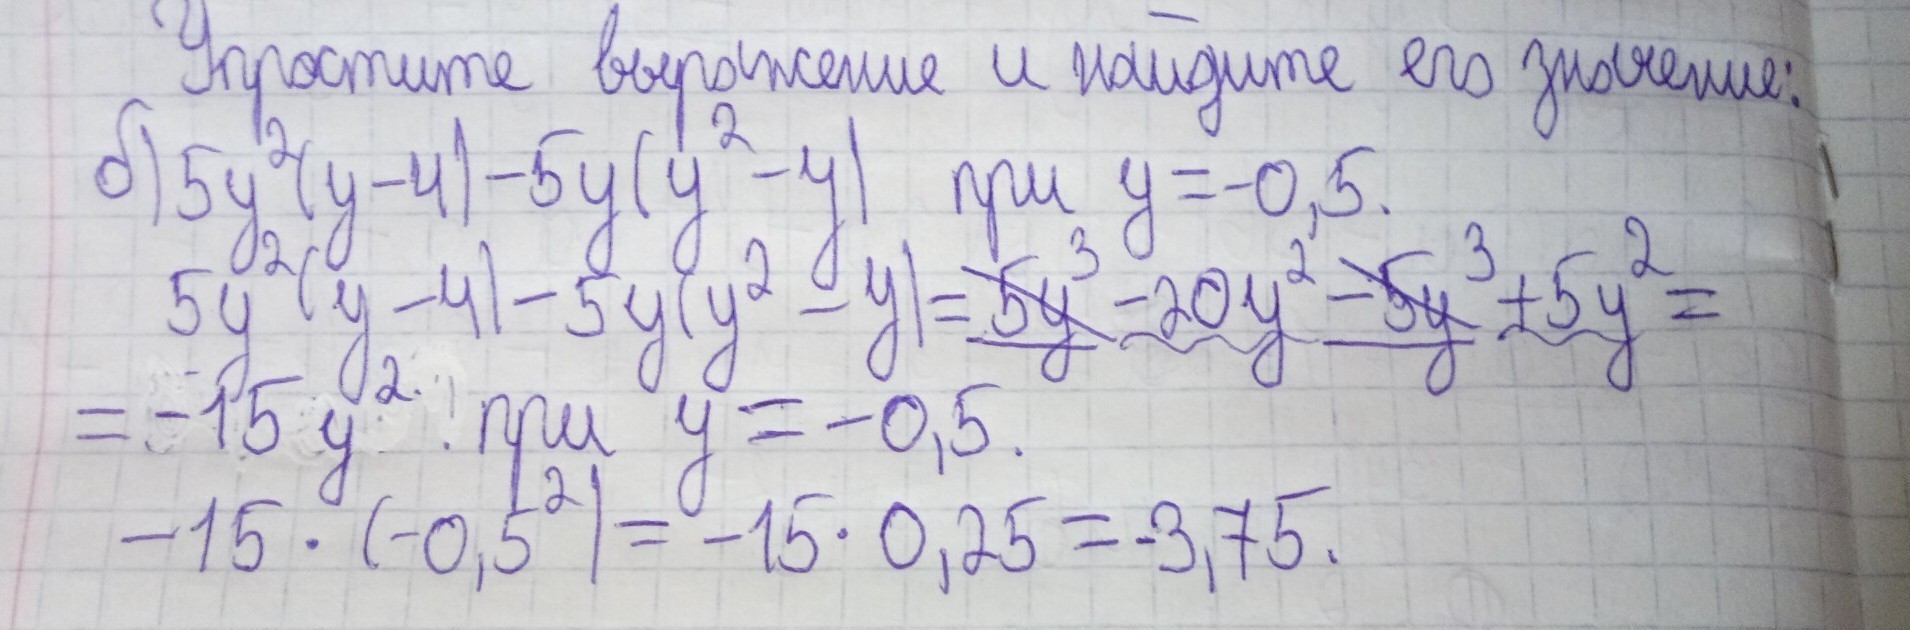 Упростите выражение и найдите его значение:
б) 5y²(y-4)-5y(y²-y) при y=-0,5.
5y²(y-4)-5y(y²-y)=5y³-20y²-5y³+5y²=
=-15y². при y=-0,5.
-15·(-0,5²)=-15·0,25=-3,75.